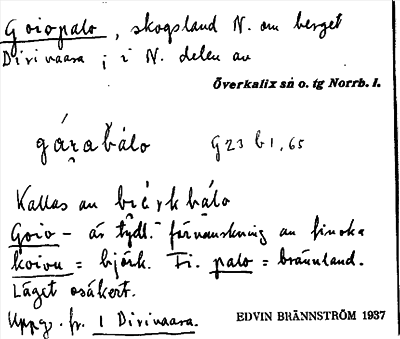 Goiopalo, skogsland N. om berget
Dirivaara; i N. delen av
Överkalix sn o. tg Norrb. l.
gárabálo G23 b1, 65
Kallas av bjérkbálo
Goio- är tydl. förvanskning av finska
koivu = björk. Fi. palo = bränland.
Läget osäkert.
Uppg. fr. 1 Dirivaara.
EDVIN BRÄNNSTRÖM 1937